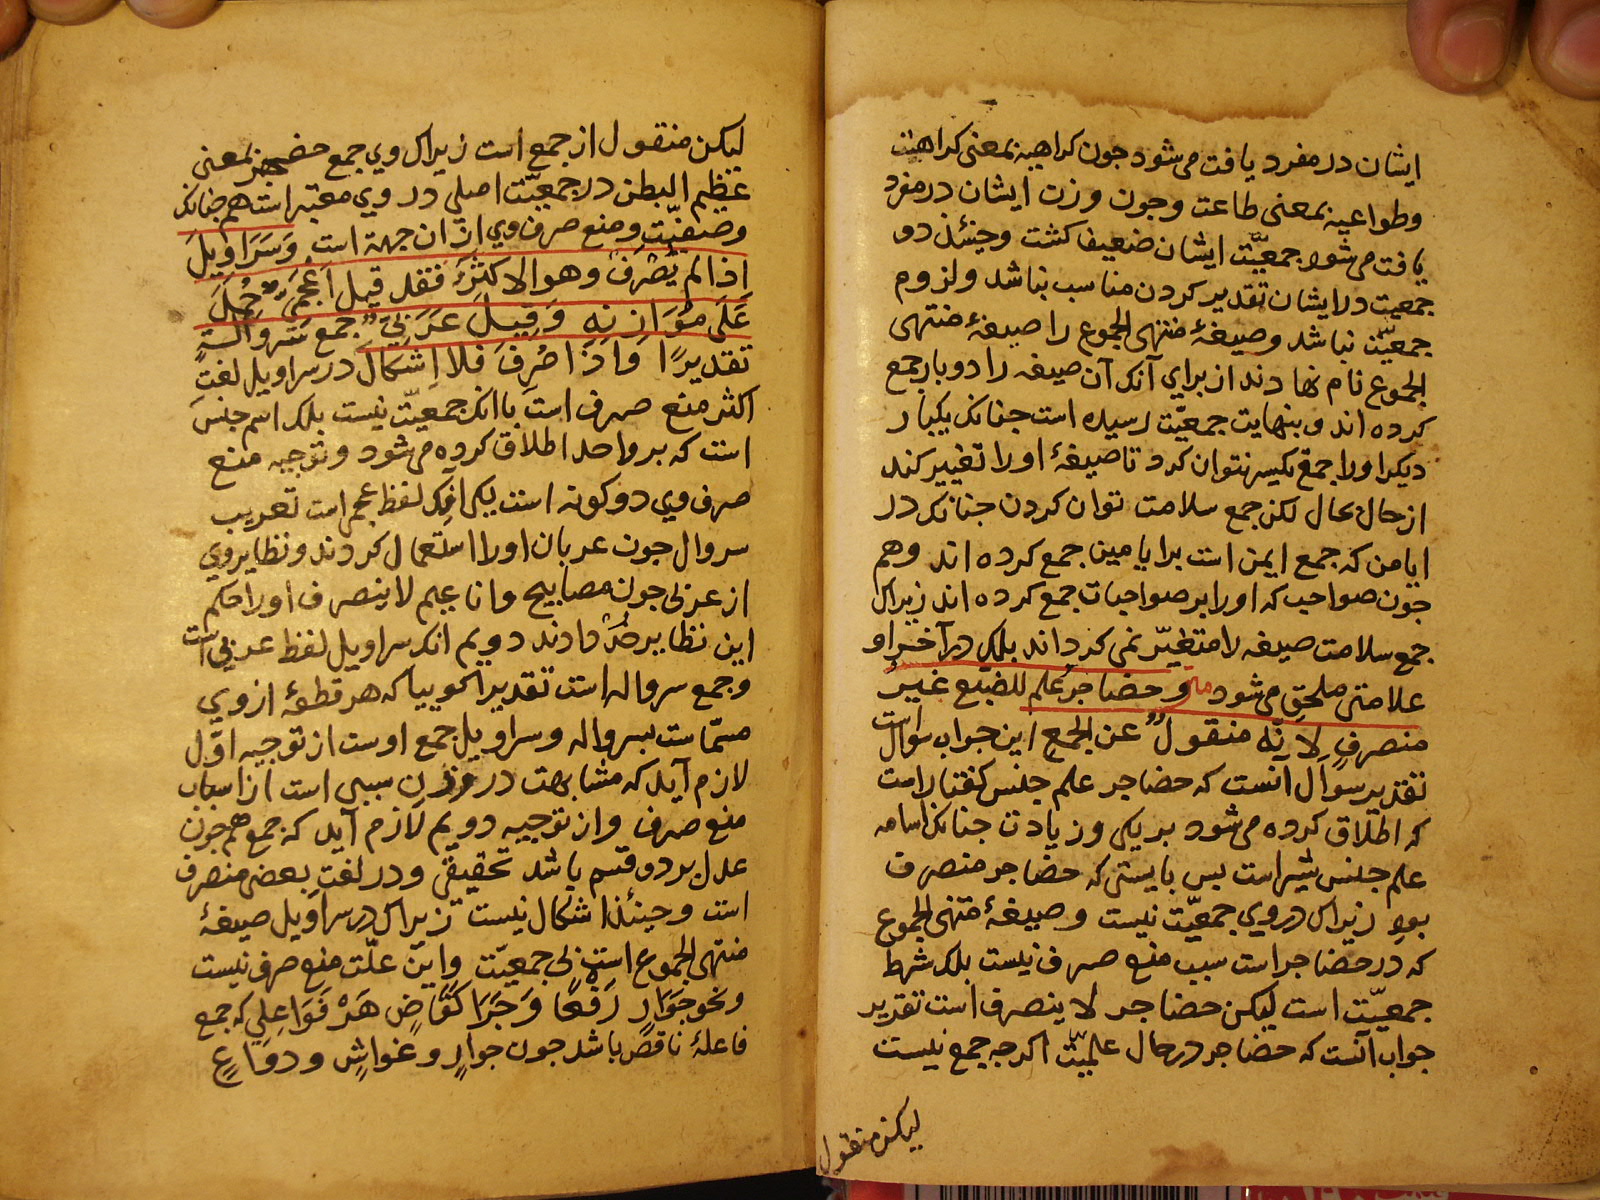 ایشان در مفرد یافت می شود جون کراهیه بمعنی کراهیت
وطواعیه بمعنی طاعت وجون وزن ایشان در مفرد
یافت می شود جمعیّت ایشان ضعیف کشت وحینئذ دو
جمعیت در ایشان تقدیر کردن مناسب نباشد ولزوم
جمعیّت نباشد وصیغۀ منتهی الجموع را صیغۀ منتهی
الجموع نام نهادند از برای آنک آن صیغه را دو بار جمع
کرده اند وبنهایت جمعیّت رسیده است جنانک یکبار
دیکر اورا جمع تکسیر نتوان کرد تا صیغۀ اورا تغییر کند
از حال بحال لکن جمع سلامت توان کردن جنانک در
ایامن که جمع ایمن است برایامین جمع کرده اند وهم
جون صواحب که اورا بر صواحبات جمع کرده اند زیراک
جمع سلامت صیغه را متغیّر نمی کرداند بلک در آخر او
علامتی ملحق می شود وحضاجر علم للضبع غیر
منصرفٍ لانّه منقولٌ عن الجمع این جواب سوال است
تقدیر سوال آنست که حضاجر علم جنس کفتار است
که اطلاق کرده می شود بر یکی وزیادت جنانک اسامه
علم جنس شیر است بس بایستی که حضاجر منصرف
بود زیراک در وی جمعیّت نیست وصیغۀ منتهی الجموع
که در حضاجر است سبب منع صرف نیست بلک شرط
جمعیّت است لیکن حضاجر لا ینصرف است تقدیر
جواب آنست که حضاجر در حال علمیّت اکرجه جمع نیست
لیکن منقول
لیکن منقول از جمع است زیراک وی جمع حضجر بمعنی
عظیم البطن در جمعیّت اصلی در وی معتبر است همجنانک
وصفیّت ومنع صرف وی از آن جهة است وَسَرَاوِیلَ
اذا لم یُصْرَفْ وهو الاکثرُ فقد قیل اَعْجَمِیٌّ حُمِلَ
عَلَی مُوَازِنِهِ وَقِیلَ عَرَبِیٌّ جمع سِرْوَالَةٍ
تقدیرًا وَاذَا صُرِفَ فلا اِشْکَالَ در سراویل لغت
اکثر منع صرف است باانک جمعیّت نیست بلک اسم جنس
است که بر واحد اطلاق کرده می شود وتوجیه منع
صرف وی دو کونه است یکی آنک لفظ عجمی است تعریب
سروال جون عربان اورا استعمال کردند ونظایر وی
از عربی جون مصابیح واناعیم لا ینصرف اورا حکم
این نظایر خود دادند دویم انک سراویل لفظ عربی است
وجمع سرواله است تقدیرا کوییا که هر قطعۀ از وی
مسمّاست بسرواله وسراویل جمع اوست از توجیه اوّل
لازم آید که مشابهت در وزن سببی است از اسباب
منع صرف واز توجیه دویم لازم آید که جمع همجون
عدل بر دو قسم باشد تحقیقی ودر لغت بعضی منصرف
است وحینئذ اشکال نیست زیراک در سراویل صیغۀ
منتهی الجموع است بی جمعیّت واین علّت منع صرف نیست
ونحو جَوَارٍ رَفعًا وَجَرًا کَقَاضٍ هَرْ فَوَاعِلِی که جمع
فاعلۀ ناقص باشد جون جوارٍ وغواشٍ ودواعٍ